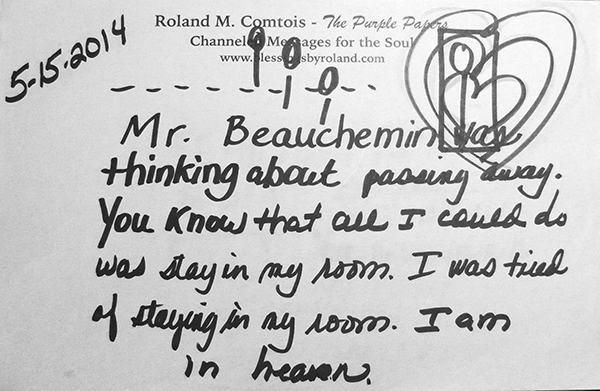 Roland M. Comtois - The Purple Papers
Channeled Messages for the Soul
www.blessingsbyroland.com
5-15-2014
Mr. Beauchemin was
thinking about passing away.
You know that all I could do
was stay in my room. I was tired
of staying in my room. I am
in heaven.